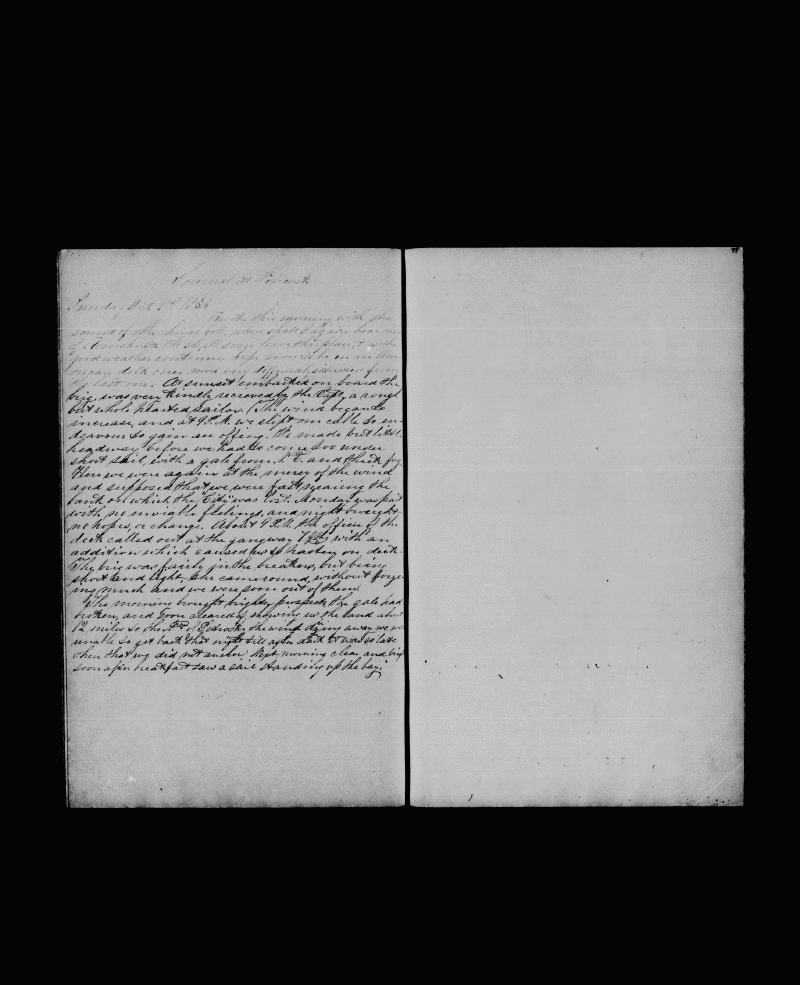 Journal at Petrovsk
Sunday Oct 1855
this morning with the
sound of the bell, when shall I again hear
of we shall soon leave this place, & with
good weather continuing hope soon to be on an Am-
erican deck once more very different situation from
the last one. At sunset embarked on board the
brig, was very kindly received by the Capt, a rough
but whole hearted sailor. The wind began to
increase, and at 9 P.M. we slipt our cable to en-
deavour to gain an offing. We made but little
headway before we had to come too under
short sail, with a gale from E. and thick fog
Here we were again at the mercy of the wind
and supposed that we were fast nearing the
bank on which the "City" was lost. Monday was past
with no enviable feelings, and night brought
no hopes, or change. About 9 P.M. the officer of the
deck called out at the gangway with an
addition which caused us to hasten on deck.
The brig was fairly in the breakers, but being
short and light, she came round, without forge-
ing much and we were soon out of them.
The morning brought brighter prospects, the gale had
broken, and soon cleared up showing us the land about
12 miles to the of Petrovsk, the wind dying away we were
unable to get back that night till after dark & it was so late
then that we did not anchor. Next morning clear and big
soon after breakfast saw a sail standing up the bay,